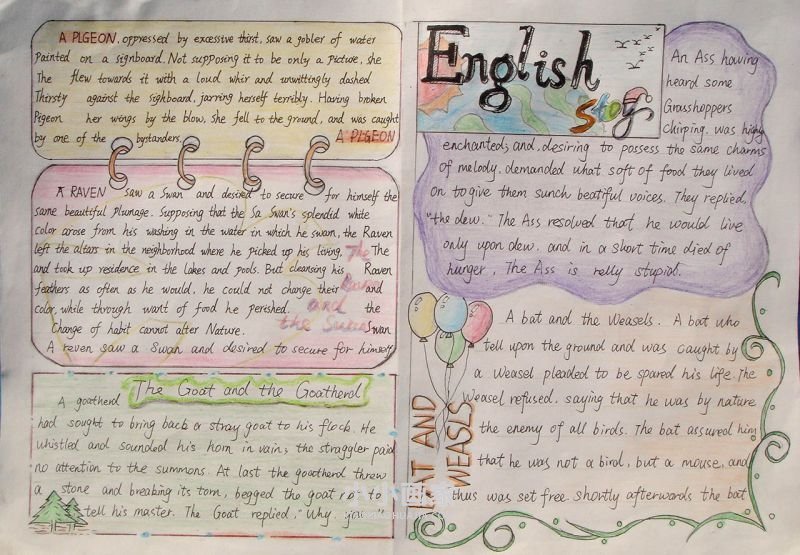 A PIGEON, oppressed by excessive thirst, saw a gobler of water
Painted on a signboard. Not supposing it to be only a picture, she
The flew towards it with a loud whir and unwittingly dashed
Thirsty against the sighboard, jarring herself terribly. Having broken
Pegeon her wings by the blow, she fell to the ground, and was caught
by one of the bystanders.
A PIGEON
A RAVEN saw a Swan and desired to secure for himself the
same beautiful plumage. Supposing that the Sa Swan's splendid white
color arose from his washing in the water in which he swam, the Raven
left the altars in the neighborhood where he picked up his living. The
and took up residence in the lakes and pools. But cleansing his Raven
feathers as often as he would, he could not change their and
color, while through want of food he perished. the
Change of habit cannot alter Nature. Swan
A reven saw a Swan and desired to secure for himself
The Raven and the Swan
The Goat and the Goatherd
A goatherd
had sought to bring back a stray goat to his flock. He
whistled and sounded his horn in vain; the straggler paid
no attention to the summons. At last the goatherd threw
a stone and breabing its torn, begged the goat not to
tell his master. The Goat replied, "Why, you
English
story
An Ass having
heard some
Grasshoppers
Chirping, was highly
enchanted; and, desiring to possess the same charms
of melody, demanded what soft of food they lived
on to give them sunch beatiful voices. They replied,
"the dew." The Ass resolved that he would live
only upon dew, and in a short time died of
hunger. The Ass is relly stupid.
A bat and the Weasels. A bat who
tell upon the ground and was caught by
a Weasel pleaded to be spared his life. The
Weasel refused, saying that he was by nature
the enemy of all birds. The bat assured him
that he was not a bird, but a mouse, and
thus was set free. Shortly afterwards the bat
BAT AND
WEASLS